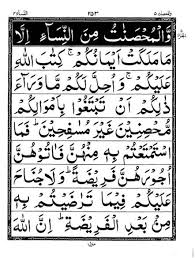 وَّالْمُحْصَنٰتُ مِنَ النِّسَآءِ اِلَّا
مَا مَلَكَتْ اَيْمَانُكُمْ ۚ كِتٰبَ اللّٰهِ
عَلَيْكُمْ ۚ وَاُحِلَّ لَكُمْ مَّا وَرَآءَ
ذٰلِكُمْ اَنْ تَبْتَغُوْا بِاَمْوَالِكُمْ
مُّحْصِنِيْنَ غَيْرَ مُسٰفِحِيْنَ ؕ فَمَا
اسْتَمْتَعْتُمْ بِهٖ مِنْهُنَّ فَاٰتُوْهُنَّ
اُجُوْرَهُنَّ فَرِيْضَةً ؕ وَلَا جُنَاحَ
عَلَيْكُمْ فِيْمَا تَرٰضَيْتُمْ بِهٖ
مِنْۢ بَعْدِ الْفَرِيْضَةِ ؕ اِنَّ اللّٰهَ